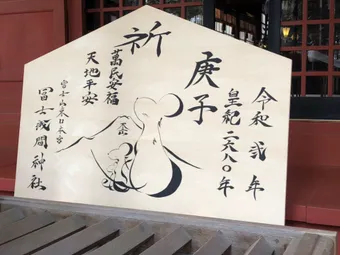 令和弐年
皇紀二六八〇年
庚子
祈
萬民安福
天地平安
冨士浅間神社